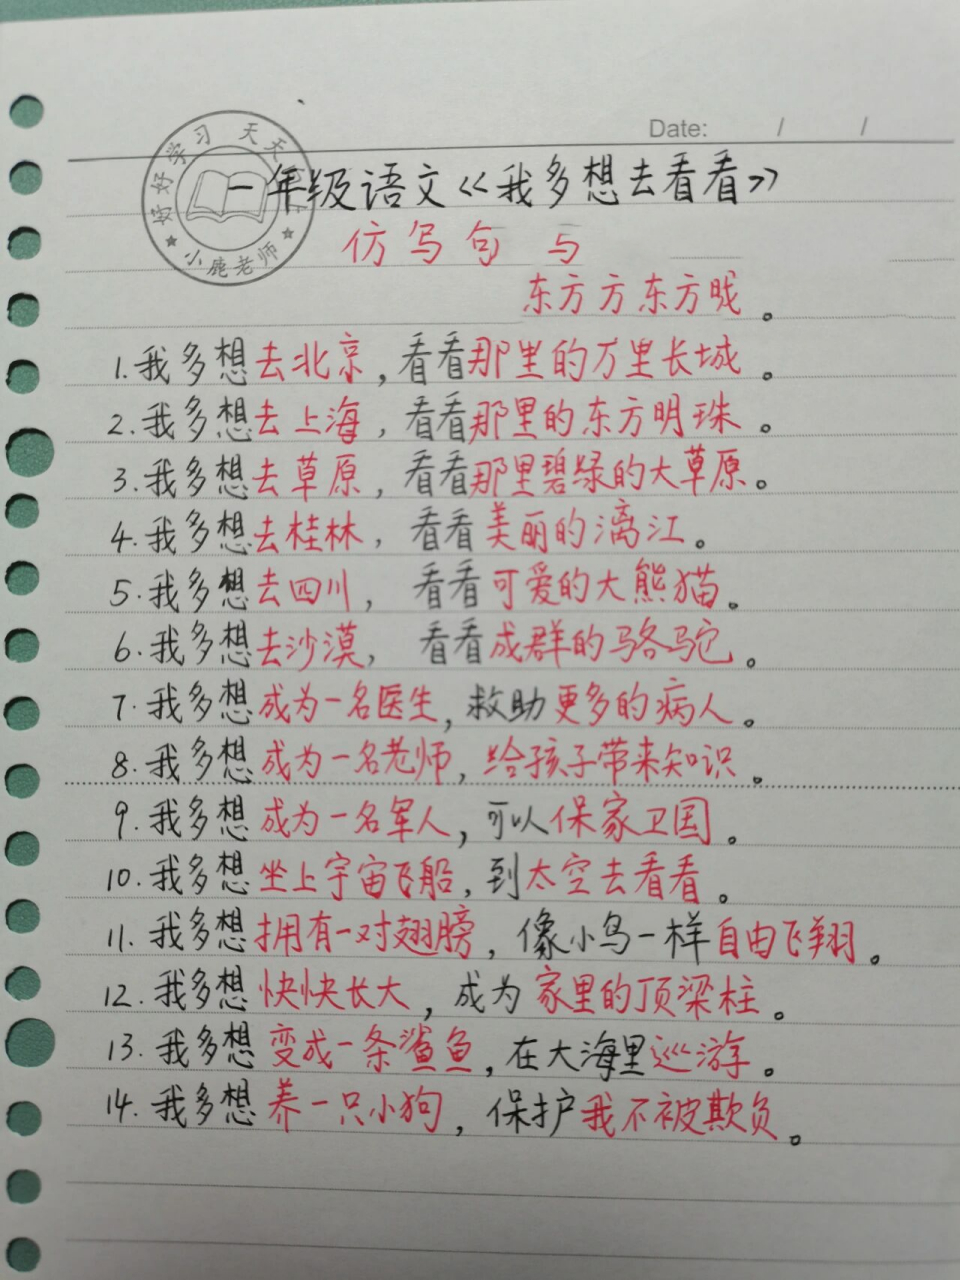 Date: / /
好好学习 天天
小鹿老师
一年级语文《我多想去看看》
仿写句 与
东方方东方
1.我多想去北京,看看那里的万里长城。
2.我多想去上海,看看那里的东方明珠。
3.我多想去草原,看看那里碧绿的大草原。
4.我多想去桂林,看看美丽的漓江。
5.我多想去四川,看看可爱的大熊猫。
6.我多想去沙漠,看看成群的骆驼。
7.我多想成为一名医生,救助更多的病人。
8.我多想成为一名老师,给孩子带来知识。
9.我多想成为一名军人,可以保家卫国。
10.我多想坐上宇宙飞船,到太空去看看。
11.我多想拥有一对翅膀,像小鸟一样自由飞翔。
12.我多想快快长大,成为家里的顶梁柱。
13.我多想变成一条鲨鱼,在大海里巡游。
14.我多想养一只小狗,保护我不被欺负。